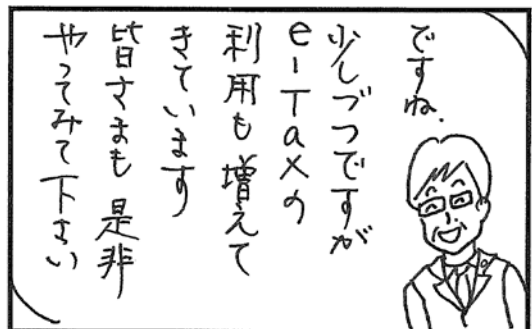 ですね.
少しづつですが
e-Taxの
利用も増えて
きています
皆さまも是非
やってみて下さい